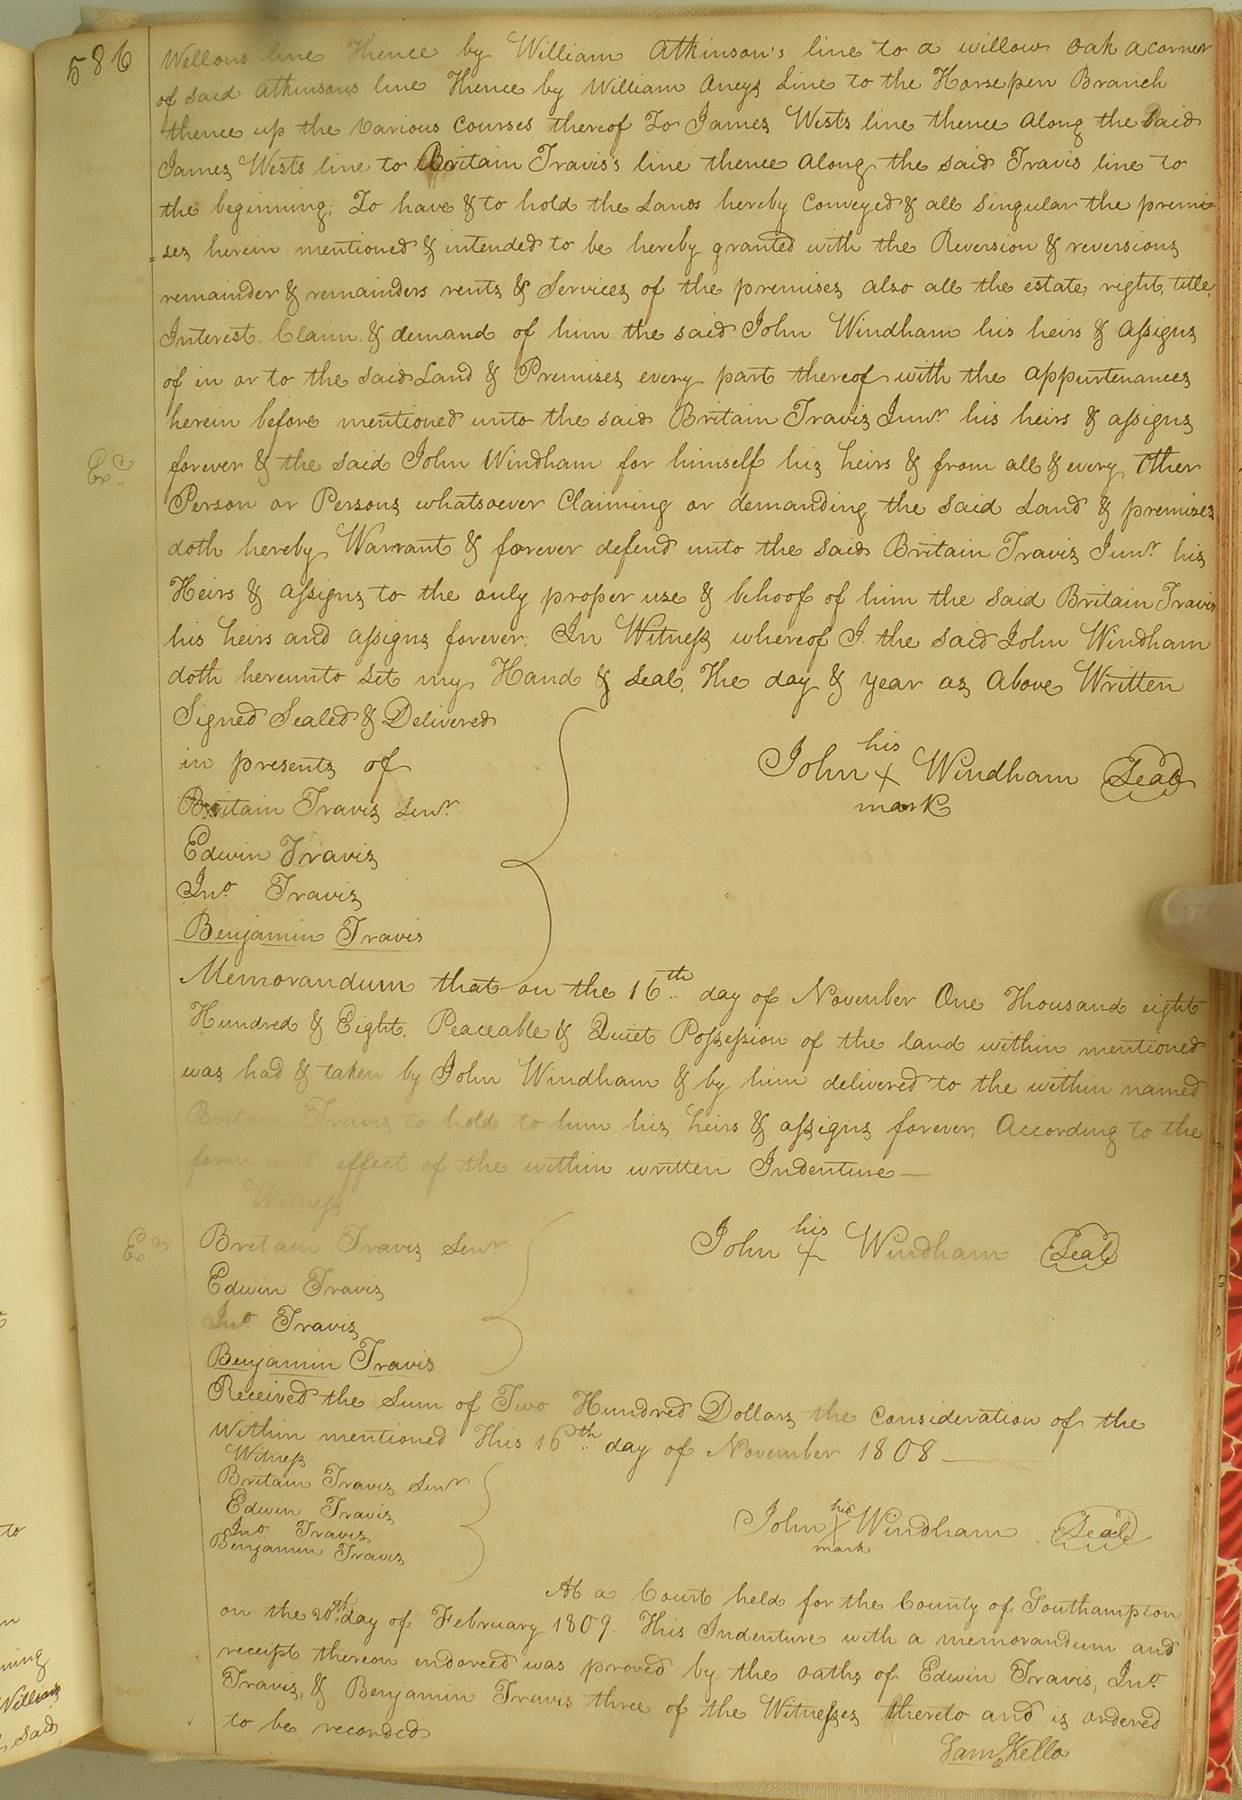 586
Wellons line Thence by William Atkinson's line to a willow oak a corner
of said Atkinsons line Thence by William Aneys Line to the Horsepen Branch
thence up the various courses thereof To James Wests line thence along the said
James Wests line to Britain Travis's line thence along the said Travis line to
the beginning; To have & to hold the Lands hereby conveyed & all Singular the premi=
=ses herein mentioned & intended to be hereby granted with the Reversion & reversions
remainder & remainders rents & Services of the premises also all the estate, right, title,
Interest, Claim & demand of him the said John Windham his heirs & assigns
of in or to the said Land & Premises every part thereof with the appurtenances
herein before mentioned unto the said Britain Travis Junr his heirs & assigns
forever & the said John Windham for himself his heirs & from all & every other
Person or Persons whatsoever Claiming or demanding the said Land & premises
doth hereby Warrant & forever defend unto the said Britain Travis Junr his
Heirs & assigns to the only proper use & behoof of him the said Britain Travis
his heirs and assigns forever. In Witness whereof I the said John Windham
doth hereunto set my Hand & seal, The day & year as above Written
Signed Sealed & Delivered
in presents of
his
John + Windham Seal
mark
Britain Travis Senr
Edwin Travis
Jno Travis
Benjamin Travis
Memorandum that on the 16th day of November One Thousand eight
Hundred & Eight, Peaceable & Quiet Possession of the land within mentioned
was had & taken by John Windham & by him delivered to the within named
Britain Travis to hold to him his heirs & assigns forever, According to the
form and effect of the within written Indenture—
Witness
his
John + Windham Seal
Britain Travis Senr
Edwin Travis
Jno Travis
Benjamin Travis
Received the Sum of Two Hundred Dollars the consideration of the
within mentioned This 16th day of November 1808 —
Witness
Britain Travis Senr
Edwin Travis
Jno Travis
Benjamin Travis
his
John X Windham Seal
mark
At a Court held for the County of Southampton
on the 20th day of February 1809. This Indenture with a memorandum and
receipt thereon endorced was proved by the oaths of Edwin Travis, Jno
Travis, & Benjamin Travis three of the Witnesses thereto and is ordered
to be recorded
Saml Kello